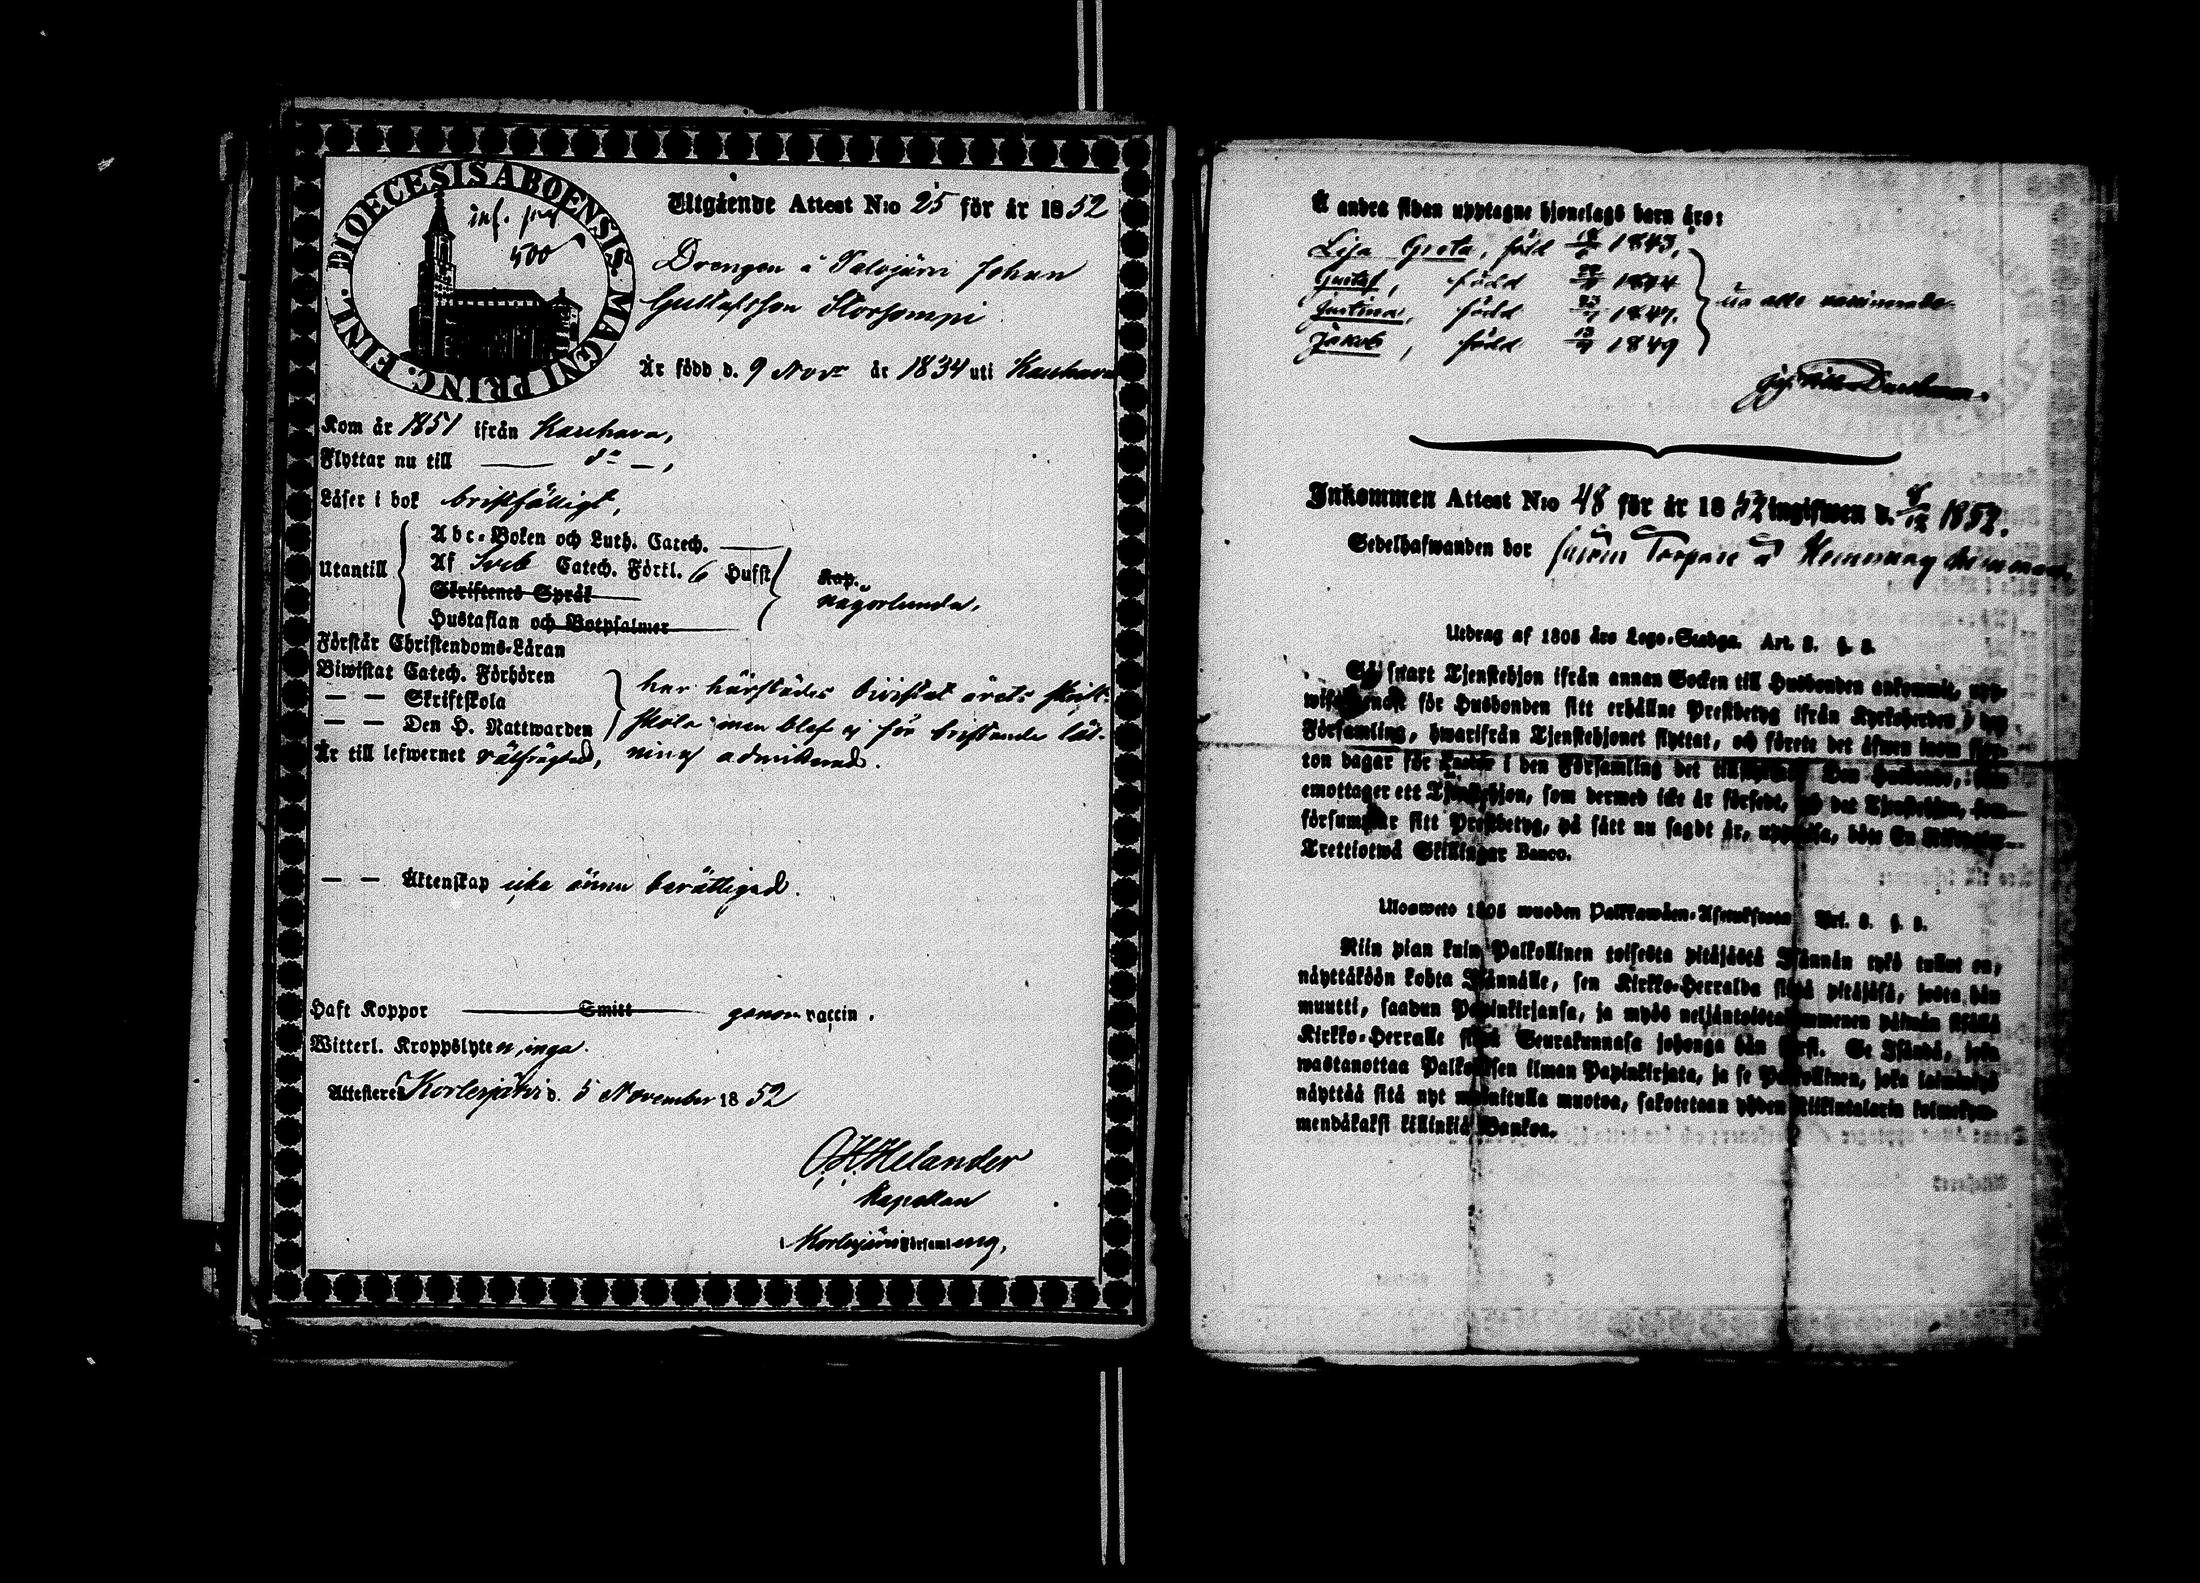 DIOECESIS ABOENSIS MAGNI PRINC. FINL.
inf. pag
500
Utgående Attest N:o 25 för år 1852
Drengen å Talvjärvi Johan
Gustafsson Storsampi
Är född d. 9 Nov:r år 1834 uti Kauhava
Kom år 1851 ifrån Kauhava,
Flyttar nu till — d:o —,
Läser i bok bristfälligt,
Utantill
Abc-Boken och Luth. Catech. —
Af Sveb Catech. Förkl. 6 Hufst
Skriftenes Språk
Hustaflan och Botpsalmer
Kap.
någorlunda.
Förstår Christendoms-Läran
Biwistat Catech. Förhören
— — Skriftskola
— — Den H. Nattwarden
har härstädes bivistat årets skrift-
skola men blef ej för bristande läs-
ning admitterad.
Är till lefwernet välfrägdad,
— — Äktenskap icke ännu berättigad.
Haft Koppor — Smitt — genom vaccin.
Witterl. Kroppslyten, inga.
Attesteras Kortesjärvi d. 5 November 1852
H Helander
Kapellan
Kortesjärvi Församling,
Å andra sidan upptagne hjonelags barn äro:
Lisa Greta, född 1843,
Gustaf, född 1844
Justina, född 1847.
Jakob, född 1849
alla vaccinerade.
Inkommen Attest N:o 48 för år 1852 ingifwen d. 8/12 1852.
Sedelhafwanden bor såsom Torpare å Hemman
Utdrag af 1805 års Lego-Stadga. Art. 2. §. 2.
Så snart Tjenstehjon ifrån annan Socken till Husbonden ankommit, upp-
wise för Husbonden sitt erhållne Prestbetyg ifrån Kyrkoherden i den
Församling, hwarifrån Tjenstehjonet flyttat, och förete det äfwen inom fjor-
ton dagar för i den Församling det
emottager ett Tjenstehjon, som dermed icke är försedt, det Tjenstehjon, som
försummar sitt Prestbetyg, på sätt nu sagdt är, böte En Riksdaler
Trettiotwå Skillingar Banco.
Ulosweto 1805 wuoden Palkkawäen-Asetuksesta Art. 2. §. 2.
Niin pian kuin Palkollinen toisesta pitäjästä Isännän tykö tullut on,
näyttäköön kohta Isännälle, sen Kirkko-Herralda siinä pitäjäsä, josta hän
muutti, saadun Papinkirjansa, ja myös neljäntoistakymmenen päiwän sisällä
Kirkko-Herralle siinä Seurakunnasa johonga hän Se Isändä, joka
wastanottaa Palkollisen ilman Papinkirjata, ja se Palkollinen, joka laiminlyö
näyttää sitä nyt mainitulla muotoa, sakotetaan yhden Riikintalarin kolmekym-
mendäkaksi killinkiä Bankoa.